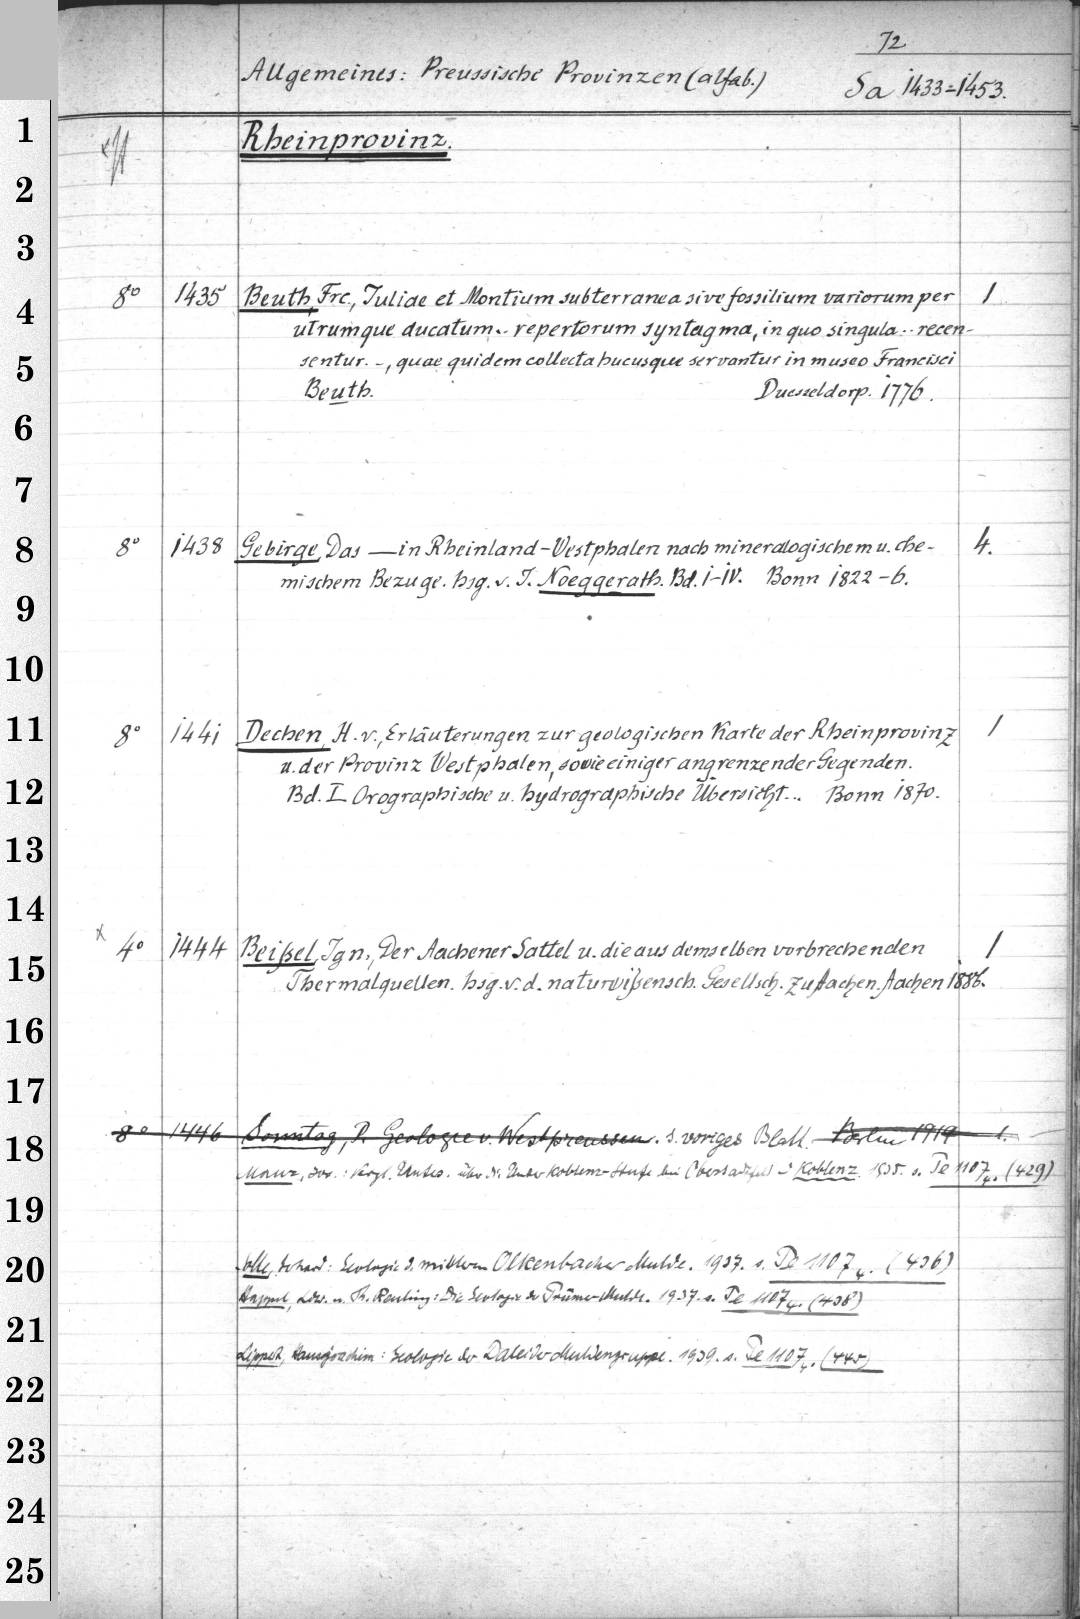 72
Allgemeines: Preussische Provinzen (alfab.) Sa 1433-1453.
1 Rheinprovinz.
2
3
4 8° 1435 Beuth, Frc., Juliae et Montium subterranea sive fossilium variorum per 1
utrumque ducatum .. repertorum syntagma, in quo singula .. recen-
5 sentur. -, quae quidem collecta hucusque servantur in museo Francisci
Beuth. Duesseldorp. 1776.
6
7
8 8° 1438 Gebirge, Das — in Rheinland-Westphalen nach mineralogischem u. che- 4.
mischem Bezuge. hsg. v. J. Noeggerath. Bd. I-IV. Bonn 1822-6.
9
10
11 8° 1441 Dechen, H. v., Erläuterungen zur geologischen Karte der Rheinprovinz 1
u. der Provinz Westphalen, sowie einiger angrenzender Gegenden.
12 Bd. I Orographische u. hydrographische Übersicht .. Bonn 1870.
13
14
x 4° 1444 Beißel, Ign., Der Aachener Sattel u. die aus demselben vorbrechenden 1
15 Thermalquellen. hsg. v. d. naturwißensch. Gesellsch. zu Aachen. Aachen 1886.
16
17
18 8° 1446 Sonntag, P. Geologie v. Westpreussen. s. voriges Blatt. Berlin 1919 1.
Mauz, Jos.: Vergl. Unters. über d. Unterkoblenz-Stufe bei Oberstadtfeld u. Koblenz. 1935. s. Te 1107/4. (429)
19
20 Gerhard: Geologie d. mittleren Olkenbacher Mulde. 1937. s. Te 1107/4. (436)
Happel, Ldw. u. Th. Reuling: Die Geologie der Prümer Mulde. 1937. s. Te 1107/4. (438)
21
Lippert, Hansjoachim: Geologie der Daleider Muldengruppe. 1939. s. Te 1107/4. (445)
22
23
24
25